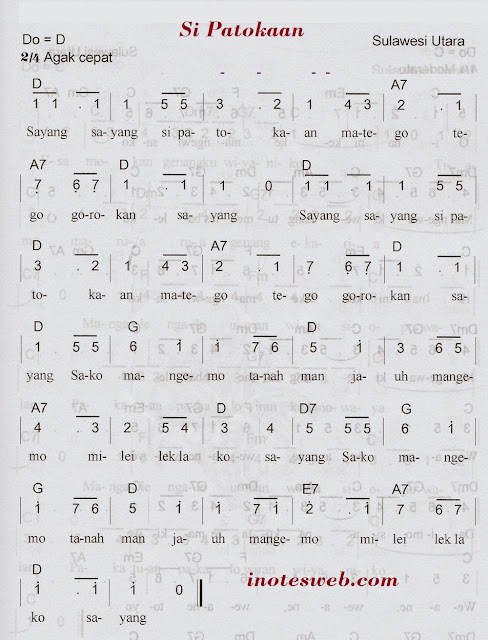 Si Patokaan
Do = D
Sulawesi Utara
2/4 Agak cepat
D A7
1 1 . 1 1 5 5 3 . 2 1 4 3 2 . 1
Sayang sa- yang si pa- to- ka- an ma-te- go te-
A7 D D
7 6 7 1 . 1 1 0 1 1 . 1 1 5 5
go go-ro- kan sa- yang Sayang sa- yang si pa-
D A7 D
3 . 2 1 4 3 2 . 1 7 6 7 1 . 1
to- ka- an ma-te- go te- go go-ro- kan sa-
D G D
1 5 5 6 1 1 7 6 5 1 3 6 5
yang Sa-ko ma- nge- mo ta-nah man ja- uh mange-
A7 D D7 G
4 . 3 2 5 4 3 4 5 5 5 6 1
mo mi- lei lek la ko sa- yang Sa-ko ma- nge-
G D E7 A7
1 7 6 5 1 1 7 1 2 . 1 7 6 7
mo ta-nah man ja- uh mange- mo mi- lei lek la
D
1 . 1 1 0
ko sa- yang
inotesweb.com